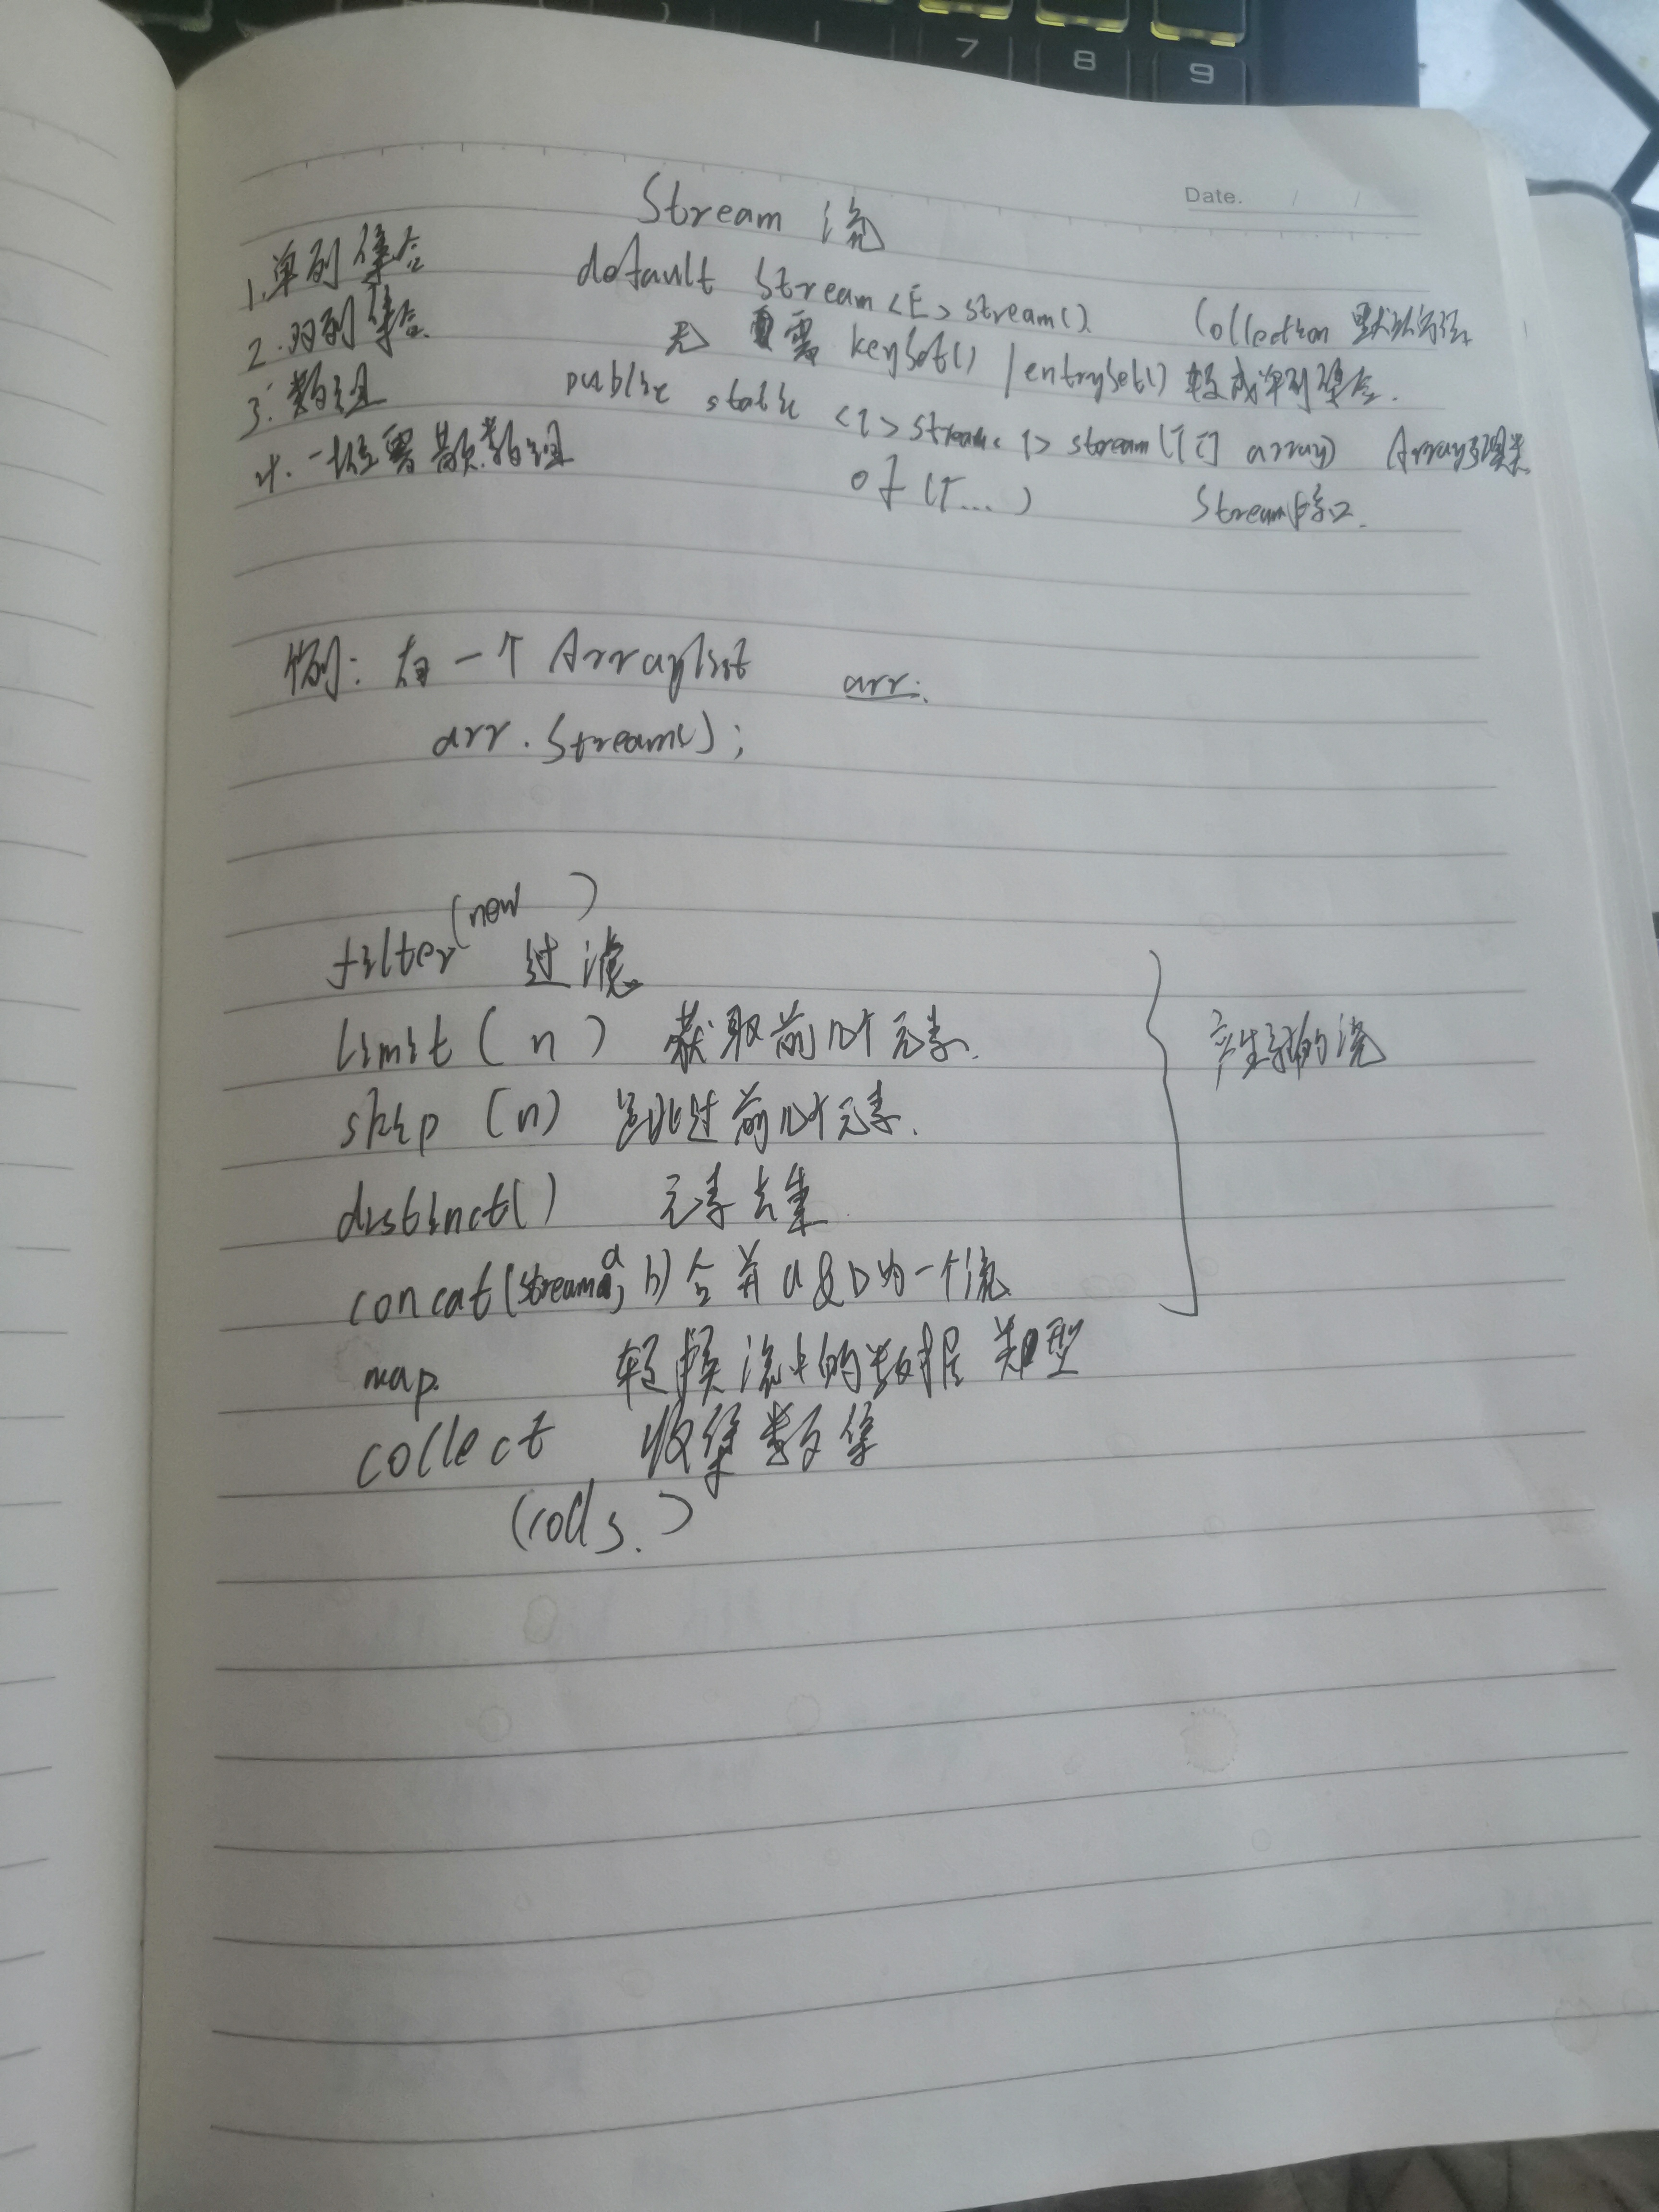 7 8 9
Date. / /
Stream 流
1.单列集合 default Stream<E> stream() Collection 默认方法
2.双列集合 无 需 keySet() / entrySet() 转成单列集合.
3.数组 public static <T> Stream<T> stream(T[] array) Arrays工具类
4.一些零散数组 of (T...) Stream接口.
例: 有一个 Arraylist arr.
arr.Stream();
filter(new )
过滤
limit ( n ) 获取前几个元素.
skip (n) 跳过前几个元素.
distinct() 元素去重
concat(stream a, b) 合并a&b为一个流
产生新的流
map. 转换流中的数据类型
collect 收集数集
(colls.)